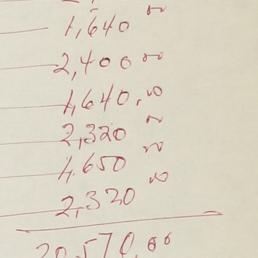 1,640 00
2,400 00
1,640.00
2,320 00
1,650 00
2,320 00
20,570.00